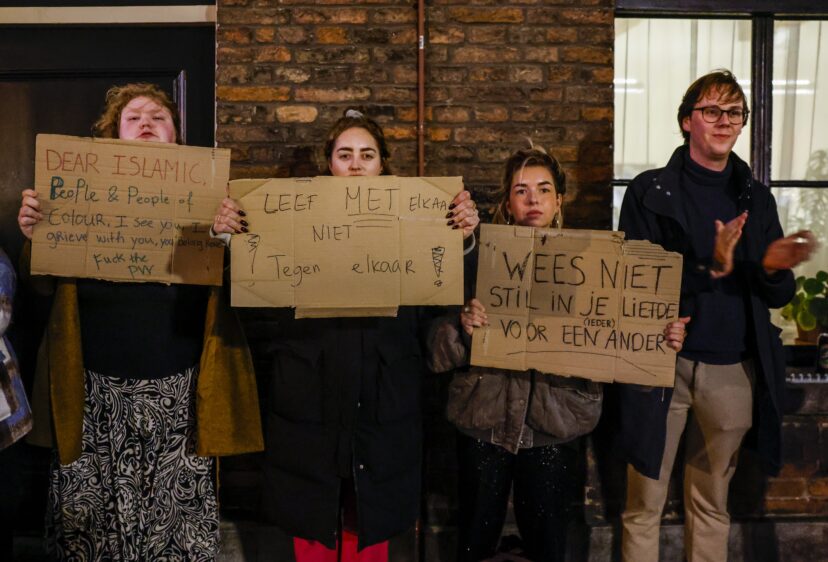 DEAR ISLAMIC,
PEOPLE & PEOPLE OF
COLOUR, I SEE YOU, I
grieve with you, you belong here
FUCK the
PVV
LEEF MET elkaar
NIET
! Tegen elkaar !
WEES NIET
STIL IN JE LIEFDE
(IEDER)
VOOR EEN ANDER